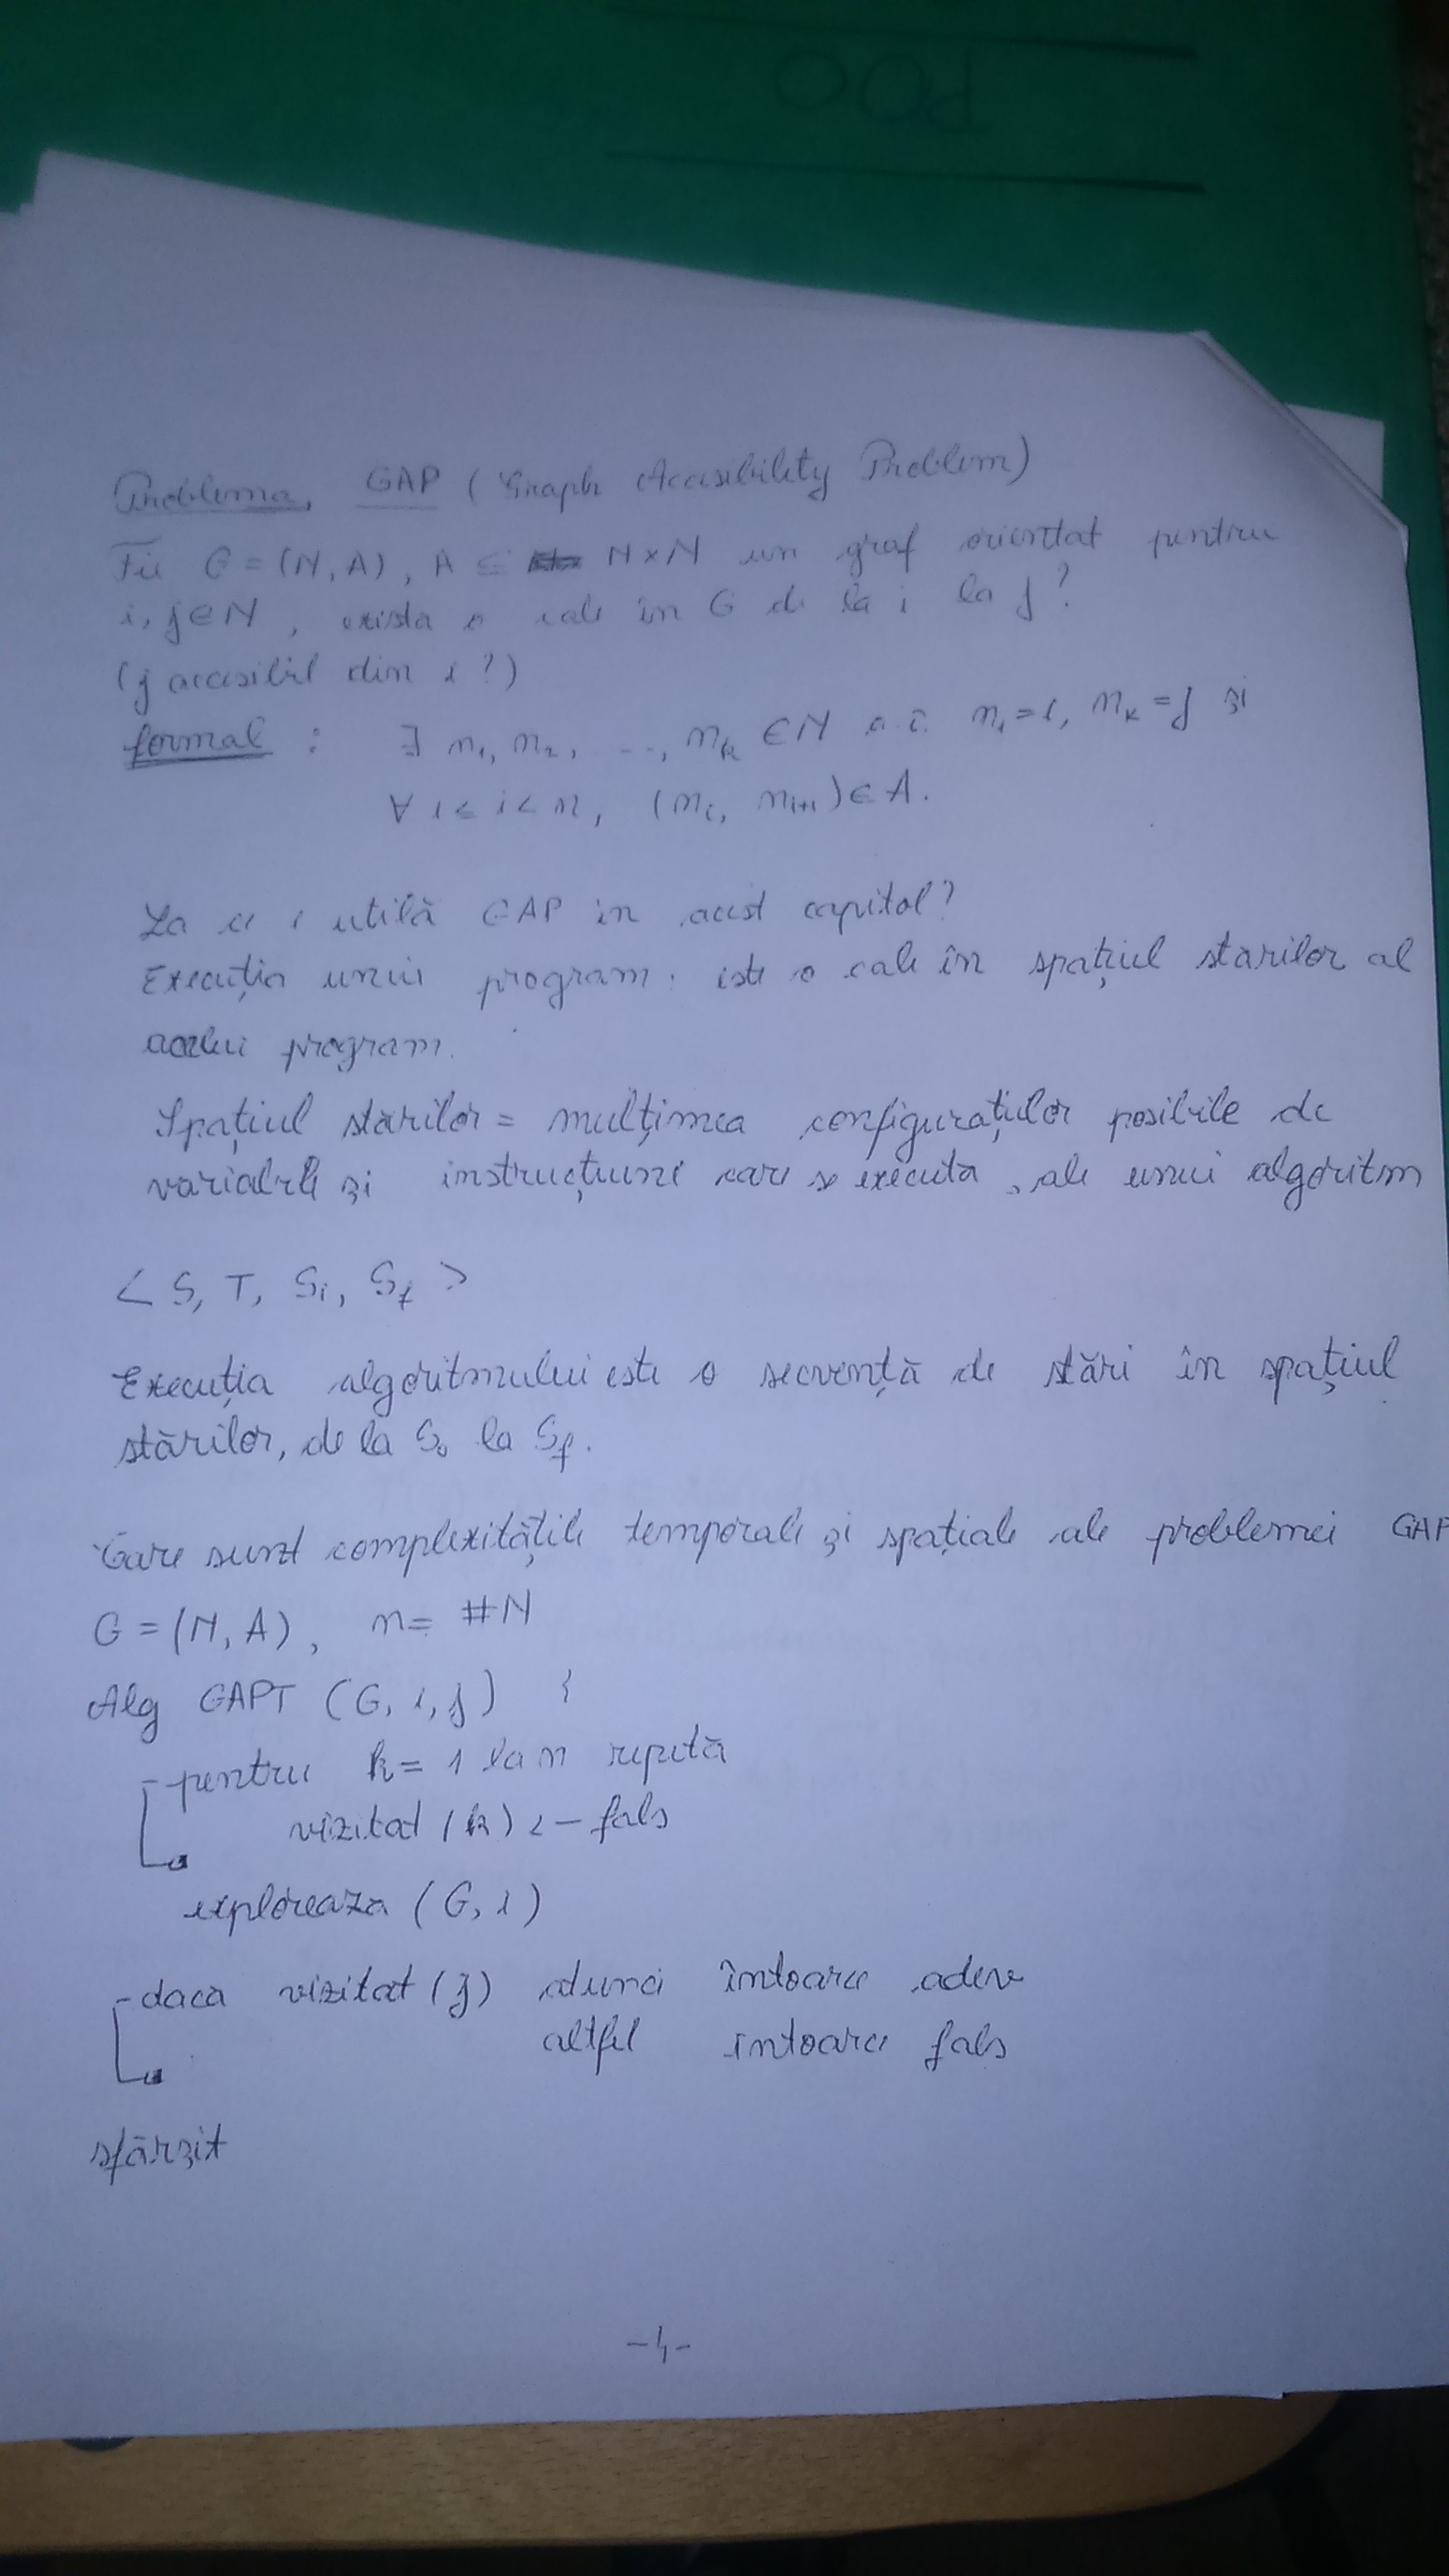 POO
Problema, GAP (Graph Accesibility Problem)
Fie G = (N, A), A ⊆ N × N un graf orientat pentru
i, j ∈ N, exista o cale în G de la i la j?
(j accesibil din i?)
formal : ∃ n₁, n₂, ..., nₖ ∈ N a.î. n₁ = i, nₖ = j și
∀ 1 ≤ i < n, (nᵢ, nᵢ₊₁) ∈ A.
La ce e utilă GAP in acest capitol?
Execuția unui program este o cale în spațiul starilor al
acelui program.
Spațiul stărilor = mulțimea configurațiilor posibile de
variabile și instrucțiuni care se executa, ale unui algoritm
< S, T, Sᵢ, S_f >
Execuția algoritmului este o secvență de stări în spațiul
stărilor, de la S₀ la S_f.
Care sunt complexitățile temporale și spațiale ale problemei GAP
G = (N, A), n = #N
Alg GAPT (G, i, j) {
pentru k = 1 la n repetă
vizitat (k) <- fals
exploreaza (G, i)
daca vizitat (j) atunci întoarce adev
altfel intoarce fals
sfârșit
-4-